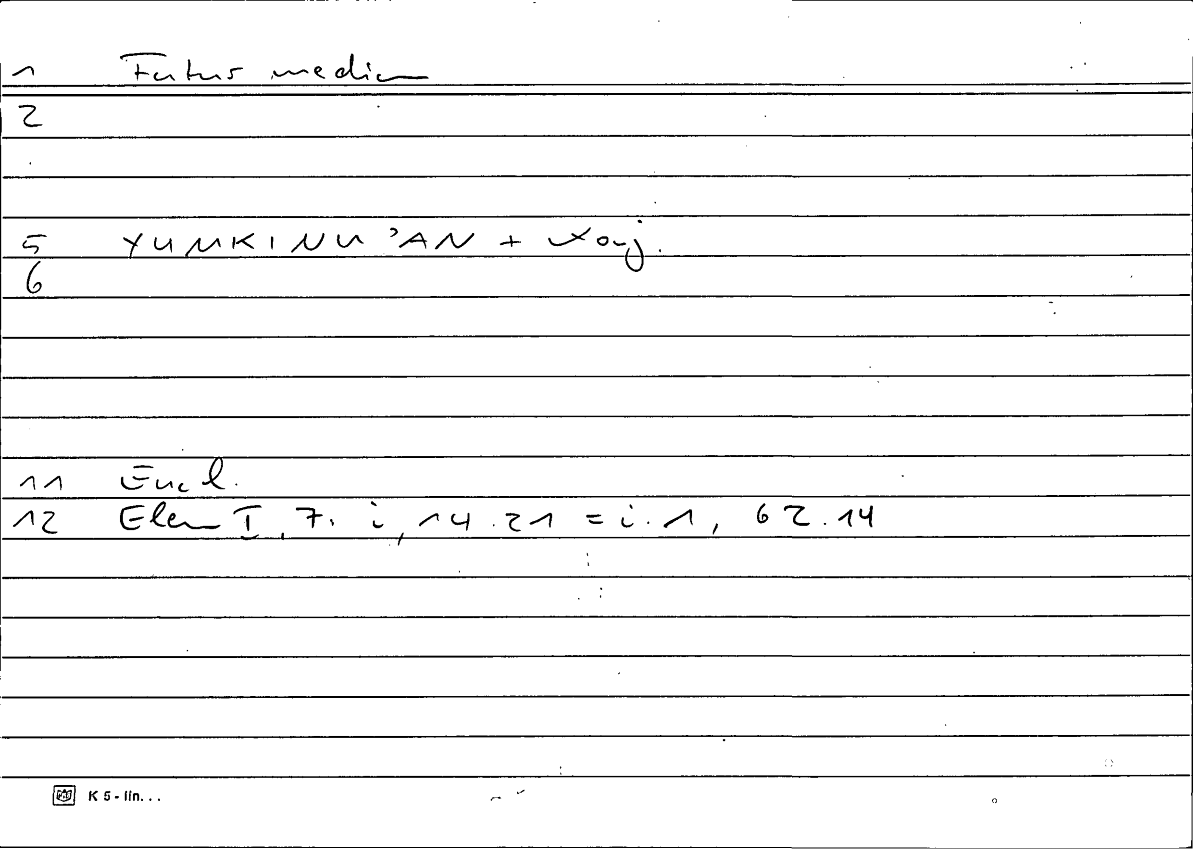 1 Futur medium
2
5 YUMKINU 'AN + Konj.
6
11 Eucl.
12 Elem I, 7. i, 14.21 = i.1, 62.14
K 5 - lin...